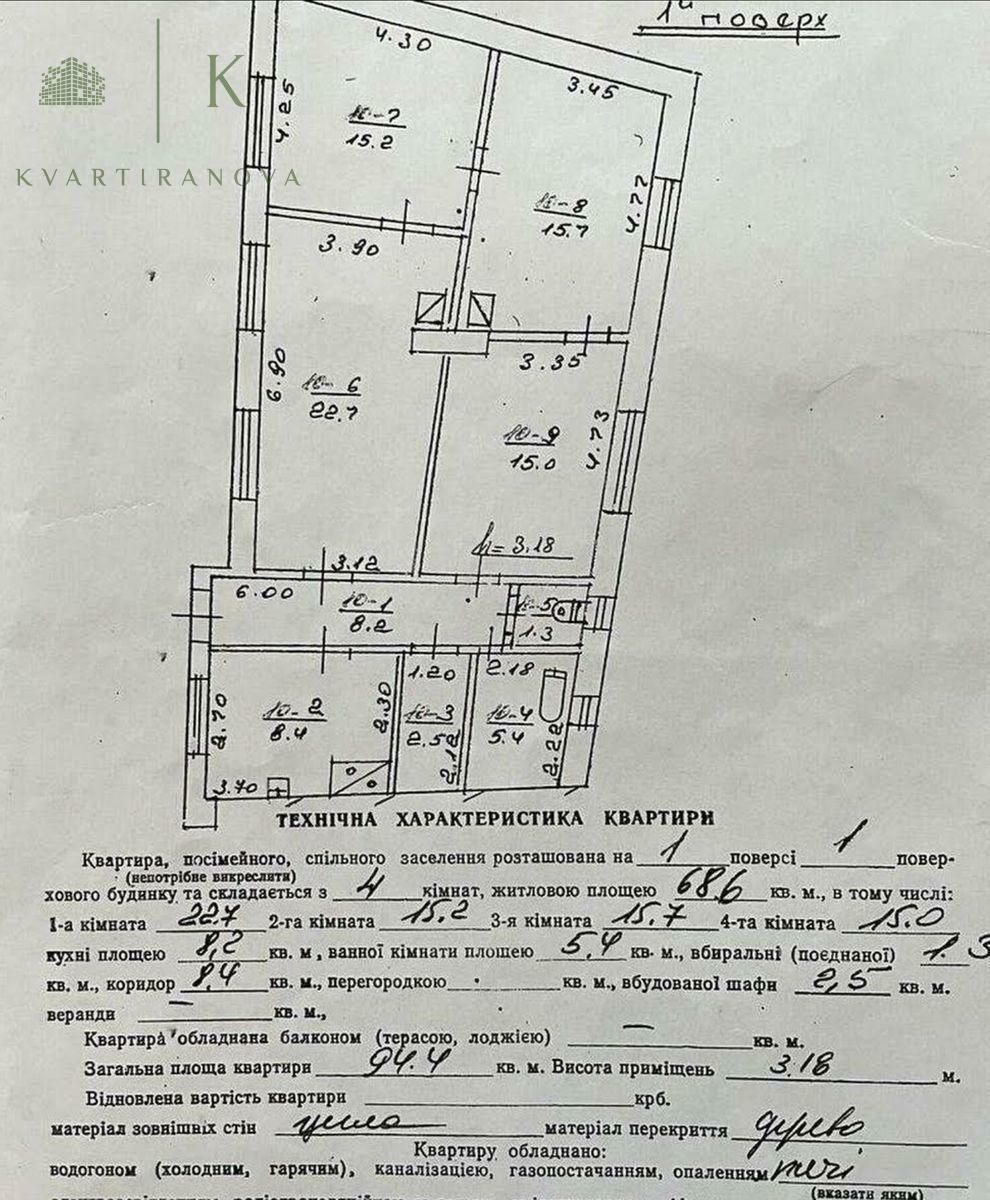 1й поверх
K
KVARTIRANOVA
4.30
3.45
4.25
10-7
15.2
10-8
15.7
4.77
3.90
6.90
10-6
22.7
3.35
10-9
15.0
4.73
h = 3.18
3.12
6.00
10-1
8.2
10-5
1.3
1.20
2.18
2.70
10-2
8.4
2.30
10-3
2.52
2.12
10-4
5.4
2.22
3.70
ТЕХНІЧНА ХАРАКТЕРИСТИКА КВАРТИРИ
Квартира, посімейного, спільного заселення розташована на 1 поверсі 1 повер-
(непотрібне викреслити)
хового будинку та складається з 4 кімнат, житловою площею 68.6 кв. м., в тому числі:
1-а кімната 22.7 2-га кімната 15.2 3-я кімната 15.7 4-та кімната 15.0
кухні площею 8,2 кв. м, ванної кімнати площею 5,4 кв. м., вбиральні (поєднаної) 1.3
кв. м., коридор 8,4 кв. м., перегородкою кв. м., вбудованої шафи 2,5 кв. м.
веранди — кв. м.,
Квартира обладнана балконом (терасою, лоджією) — кв. м.
Загальна площа квартири 94.4 кв. м. Висота приміщень 3.18 м.
Відновлена вартість квартири крб.
матеріал зовнішніх стін цегла матеріал перекриття дерево
Квартиру обладнано:
водогоном (холодним, гарячим), каналізацією, газопостачанням, опаленням печі
(вказати яким)